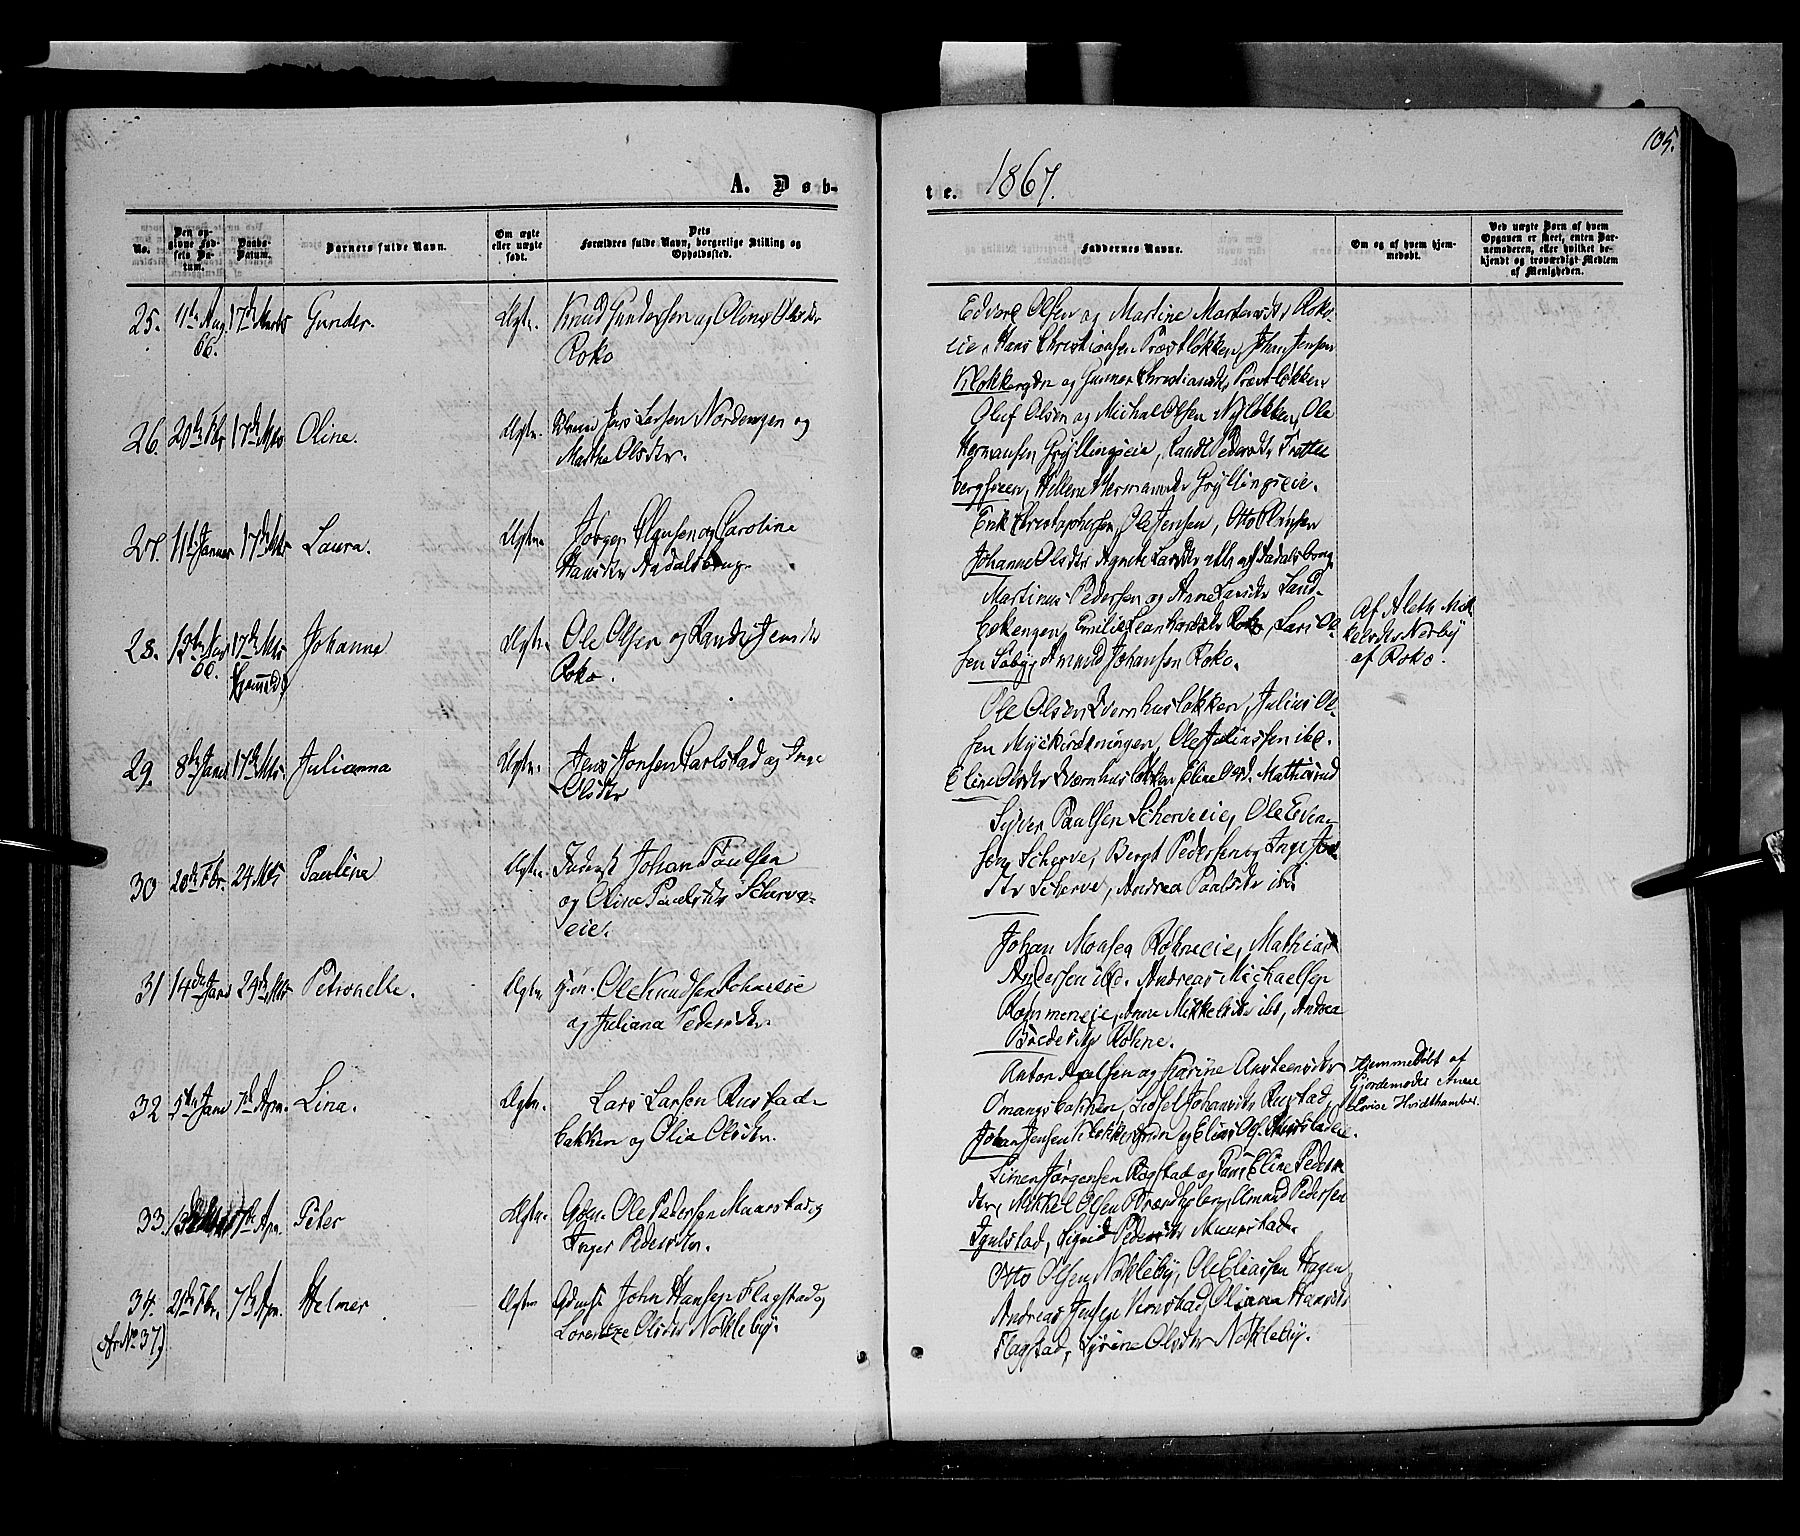 105.
A. Døb-
te. 1867.
No.
Den op-
givne Fød-
sels Da-
tum.
Daabs-
Datum.
Barnets fulde Navn.
Om ægte
eller uægte
født.
Dets
Forældres fulde Navn, borgerlige Stilling og
Opholdssted.
Faddernes Navne.
Om og af hvem hjem-
medøbt.
Ved uægte Børn af hvem
Opgaven er skeet, enten Bar-
nemoderen, eller hvilket be-
kjendt og troværdigt Medlem
af Menigheden.
25. 11te Aug 66. 17de Marts Gunder. Ægte. Knud Gundersen og Oline Olsdtr
Roko
Edvard Olsen og Martine Martinsdtr Roko-
eie, Hans Christiansen Præstløkken, Johan Jensen
Klokkergrdn og Gunnor Christiansdtr Præstløkken
26. 20de Fbr 17de Mts Oline. Ægte. Lars Larsen Nordengen og
Marthe Olsdtr.
Oluf Olsen og Michal Olsen Nyløkken, Ole
Hermansen Gryllingseie, Randi Pedersdtr Fratten
bergseien, Hellene Hermansdtr Gryllingseie.
27. 11te Januar 17de Mts Laura. Ægte. Jørgen Hansen og Caroline
Hansdtr Aadalsbrug.
Erik Christophersen, Ole Jensen, Otto Hansen
Johanne Olsdtr Agnete Larsdtr alle af Aadalsbrug
28. 17de Mts Johanne Ægte. Ole Olsen og Randi Jensdtr
Roko.
Martinus Pedersen og Anne Larsdtr Sand-
bækengen, Emilie Leonhardsdtr Roko, Lars Ol-
sen Søby, Amund Johansen Roko.
Af Aleth Mik-
kelsdtr Nerby
af Roko.
29. 8de Jan 17de Mts Julianna Ægte. Jens Jonsen Carlstad og Inge
Olsdtr
Ole Olsen Kvernhusløkken, Julius Ol-
sen Ole Juliussen ibd.
Eline Olsdtr Kværnhusløkken Eline Olsd. Mathisrud
30 20de Fbr. 24 Mts Pauline Ægte. Inderst Johan Paulsen
og Oline Paulsdtr Scherve-
eie.
Syver Paulsen Scherveeie, Ole Even-
sen Scherve, Bergt Pedersen og Inge
dtr Scherve, Andrea Paulsdtr ibd
31 14de Jan 24de Mts Petronelle. Ægte. Ole Knudsen Røhneeie
og Juliana Pedersdtr.
Johan Moasen Røhneeie, Mathias
Andersen ibd. Andreas Michaelsen
Rømmeneie, Anne Mikkelsdtr ibd, Andrea
Røhne.
32 5te Jan 7de Apr. Lina. Ægte. Lars Larsen Rustad-
bakken og Olia Olsdtr.
Anton Axelsen og Karine Austensdtr
Omangsbakken, Sidsel Johansdtr Rustad,
Johan Jensen Klokkergrdn og Elias Ols. Rustadeie.
Hjemmedøbt af
Gjordemoder Anne
Lovise Hvidthammer.
33. 7de Apr. Peter Ægte. Gbr. Ole Pedersen Maarstad og
Inger Pedersdtr.
Simen Jørgensen Rogstad og Eline Peders-
dtr, Mikkel Olsen Amund Pedersen
Igulstad, Sigrid Pedersdtr Maarstad.
34.
(Ar No 37.) 21de Fbr. 7de Apr. Helmer Ægte John Hansen Flagstad og
Lorentze Olsdtr Nokleby.
Otto Olsen Nokleby, Ole Eliassen Hagen
Andreas Jensen Vinstad, Oliana Hansdtr
Flagstad, Syrine Olsdtr Nokleby.